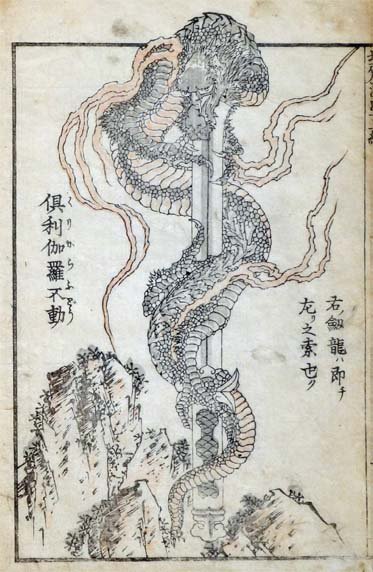 右ノ劔龍ハ即チ
左リ之索也
くりからふどう
俱利伽羅不動